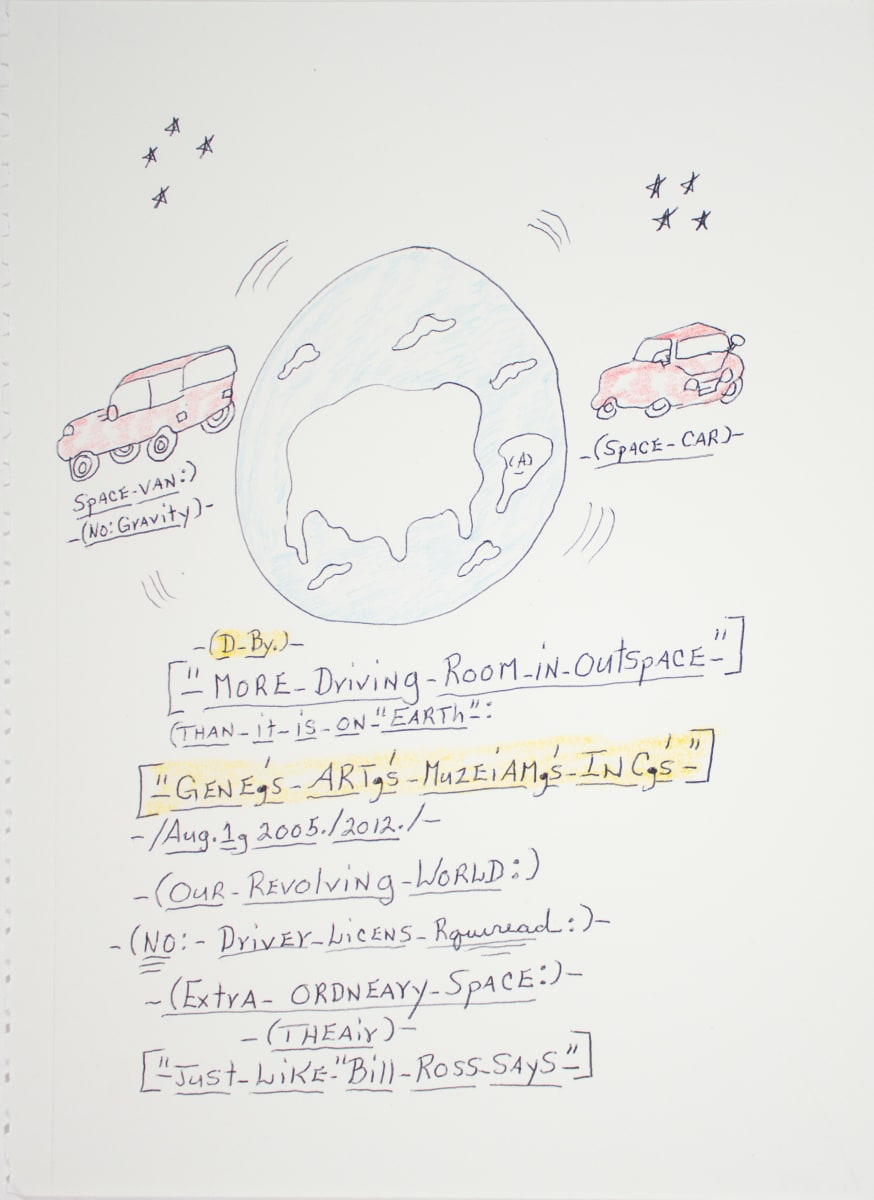 (A)
-(SPACE-CAR)-
SPACE-VAN:)
-(NO: GrAvity)-
-(D-By.)-
["- MORE-Driving-ROOM-iN-OutSpACE-"]
(THAN-it-iS-ON-"EARTh":
["GENEg's-ARTg's-MuzEiAMg's-INCg's-"]
-/Aug.1g 2005./2012./-
-(OUR-REvolving-WORLD:)
-(NO:- DrivEr-LicENS-Rquiread:)-
-(ExtrA- ORDNEAry-SpACE:)-
-(THEAir)-
["-Just-LiKE-"Bill-ROSS-SAyS-"]